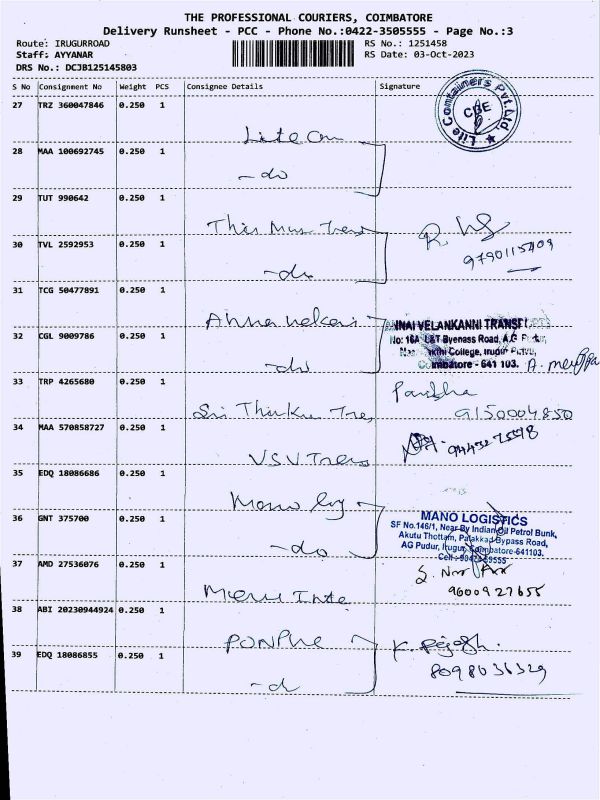 THE PROFESSIONAL COURIERS, COIMBATORE
Delivery Runsheet - PCC - Phone No.:0422-3505555 - Page No.:3
Route: IRUGURROAD
Staff: AYYANAR
DRS No.: DCJB125145803
RS No.: 1251458
RS Date: 03-Oct-2023
S No Consignment No Weight PCS Consignee Details Signature
27 TRZ 360047846 0.250 1
Lite Containers Pvt.Ltd. CBE
Lite Con
28 MAA 100692745 0.250 1
-do
29 TUT 990642 0.250 1
30 TVL 2592953 0.250 1
-do
31 TCG 50477891 0.250 1
32 CGL 9009786 0.250 1
NNAI VELANKANNI TRANSP
No: 16A L&T Byepass Road, A.G
College, Irugur
Coimbatore - 641 103.
-do
33 TRP 4265680 0.250 1
9150004850
Sri
34 MAA 570858727 0.250 1
VSV Trans
35 EDQ 18086686 0.250 1
Mano Log
36 GNT 375700 0.250 1
MANO LOGISTICS
SF No.146/1, Near By Indian Oil Petrol Bunk,
Akutu Thottam, Palakkad Bypass Road,
AG Pudur, Irugur, Coimbatore-641103.
-do
37 AMD 27536076 0.250 1
9600927655
38 ABI 20230944924 0.250 1
8098036329
39 EDQ 18086855 0.250 1
-d